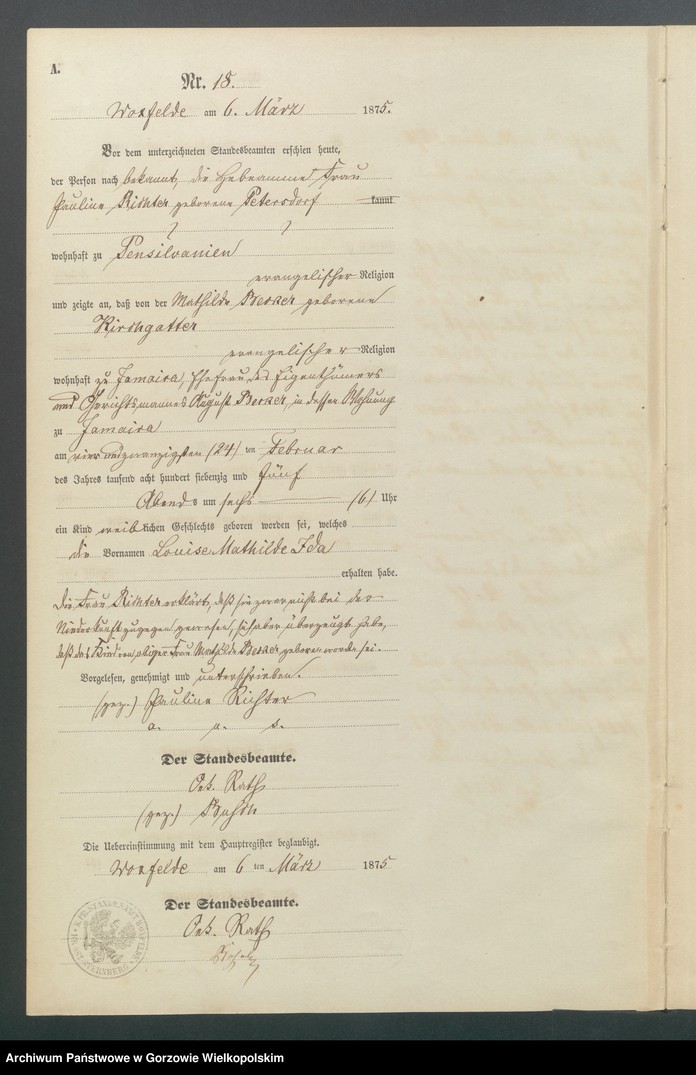 A.
Nr. 18.
Woxfelde am 6. März 1875.
Vor dem unterzeichneten Standesbeamten erschien heute,
der Person nach bekannt, die Hebeamme Frau
Pauline Richter geborene Petersdorf kannt
wohnhaft zu Pensilvanien
evangelischer Religion
und zeigte an, daß von der Mathilde Becker geborene
Kirchgatter
evangelischer Religion
wohnhaft zu Jamaica, Ehefrau des Eigenthümers
und Gerichtsmannes August Becker, in dessen Wohnung
zu Jamaica
am vier und zwanzigsten (24) ten Februar
des Jahres tausend acht hundert siebenzig und fünf
Abends um sechs (6) Uhr
ein Kind weiblichen Geschlechts geboren worden sei, welches
die Vornamen Louise Mathilde Ida
erhalten habe.
Die Frau Richter erklärt, daß sie zwar nicht bei der
Niederkunft zugegen gewesen, sich aber überzeugt habe,
daß das Kind von obiger Frau Mathilde Becker geboren worden sei.
Vorgelesen, genehmigt und unterschrieben.
(gez.) Pauline Richter
a. u. s.
Der Standesbeamte.
Oek. Rath
(gez.)
Die Uebereinstimmung mit dem Hauptregister beglaubigt.
Woxfelde am 6 ten März 1875
Der Standesbeamte.
Oek. Rath
STERNBERG
Archiwum Państwowe w Gorzowie Wielkopolskim